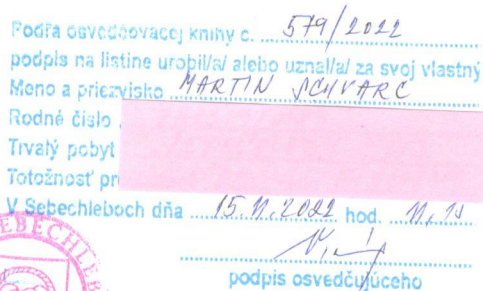 Podľa osvedčovacej knihy č. 579/2022
podpis na listine urobil/a/ alebo uznal/a/ za svoj vlastný
Meno a priezvisko MARTIN SCHVARC
Rodné číslo
Trvalý pobyt
Totožnosť pr
V Sebechleboch dňa 15.11.2022 hod. 11,15
podpis osvedčujúceho
SEBECHLEB